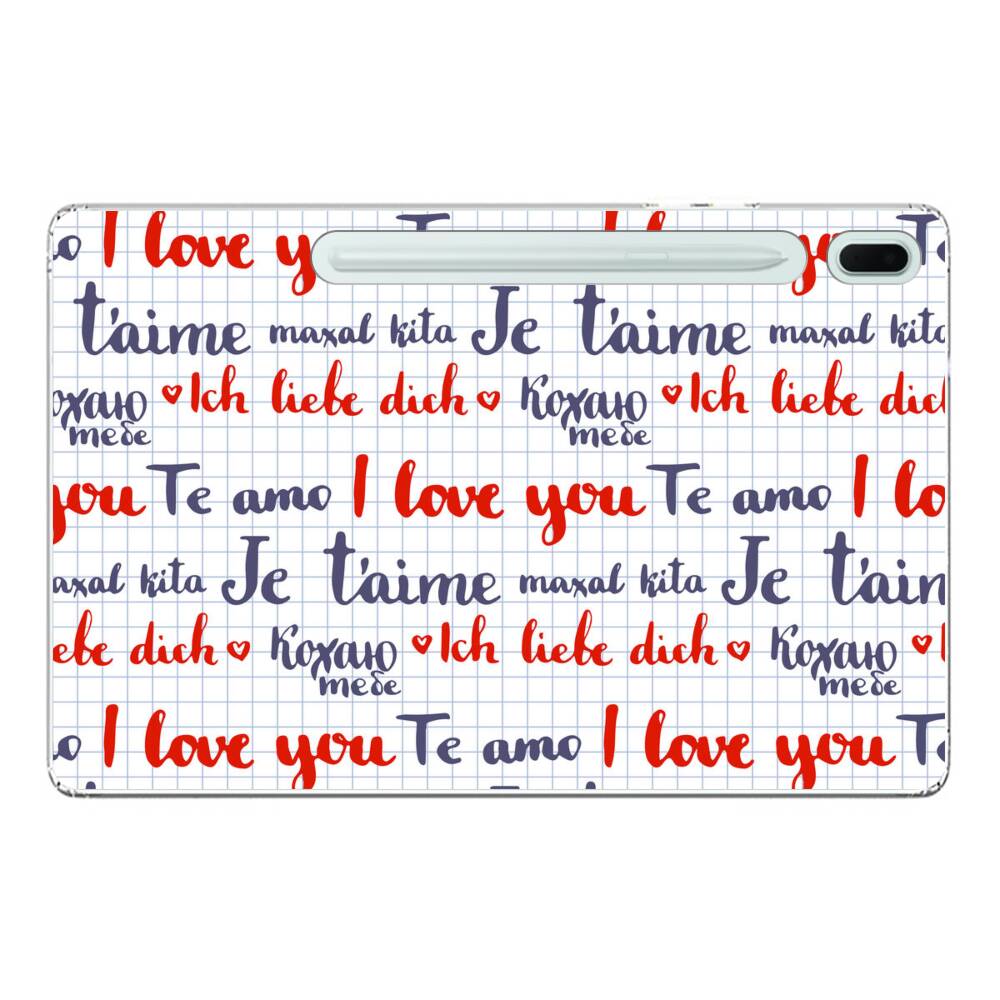 I love y Te
t'aime maxal kita Je t'aime maxal kita
♥ Ich liebe dich ♥ Кохаю тебе ♥ Ich liebe dich
you Te amo I love you Te amo I lo
axal kita Je t'aime maxal kita Je t'aim
ebe dich ♥ Кохаю тебе ♥ Ich liebe dich ♥ Кохаю тебе ♥
I love you Te amo I love you Te